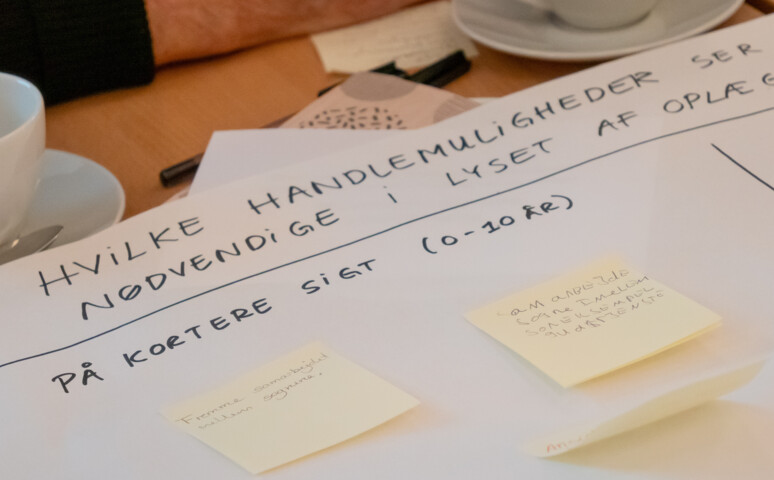 HVILKE HANDLEMULIGHEDER SER
NØDVENDIGE I LYSET AF OPLÆG
PÅ KORTERE SIGT (0-10 ÅR)
Fremme samarbejdet
mellem sognene.
SAMARBEJDE
SOGNE IMELLEM
SOM EKSEMPEL